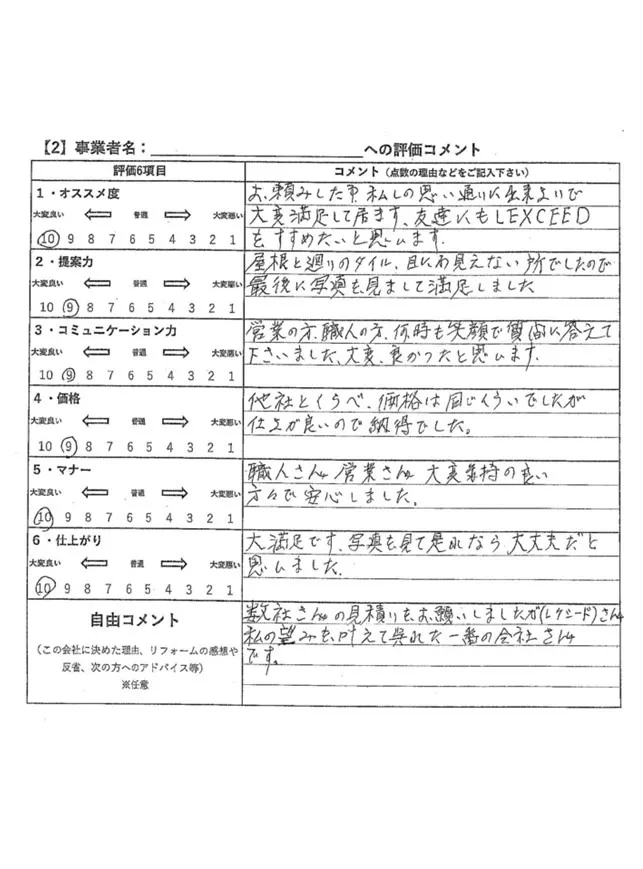 【2】事業者名：　　　　　　　　　　への評価コメント
評価6項目
コメント（点数の理由などをご記入下さい）
1・オススメ度
大変良い 普通 大変悪い
10 9 8 7 6 5 4 3 2 1
お頼みした事、私しの思い通りに出来よいで
大変満足して居ます、友達にもLEXCEED
をすすめたいと思います。
2・提案力
大変良い 普通 大変悪い
10 9 8 7 6 5 4 3 2 1
屋根と廻りのタイル、目にわ見えない所でしたので
最後に写真も見まして満足しました
3・コミュニケーション力
大変良い 普通 大変悪い
10 9 8 7 6 5 4 3 2 1
営業の方、職人の方、何時も笑顔で質問に答えて
下さいました、大変、良かつたと思います。
4・価格
大変良い 普通 大変悪い
10 9 8 7 6 5 4 3 2 1
他社とくらべ、価格は同じくらいでしたが
仕上が良いので納得でした。
5・マナー
大変良い 普通 大変悪い
10 9 8 7 6 5 4 3 2 1
職人さん 営業さん 大変気持の良い
方々で安心しました。
6・仕上がり
大変良い 普通 大変悪い
10 9 8 7 6 5 4 3 2 1
大満足です、写真を見て是れなら大丈夫だと
思いました。
自由コメント
（この会社に決めた理由、リフォームの感想や
反省、次の方へのアドバイス等）
※任意
数社さんの見積りもお願いしましたが(レクシード)さん
私の望みを、叶えて呉れた一番の会社さん
です。